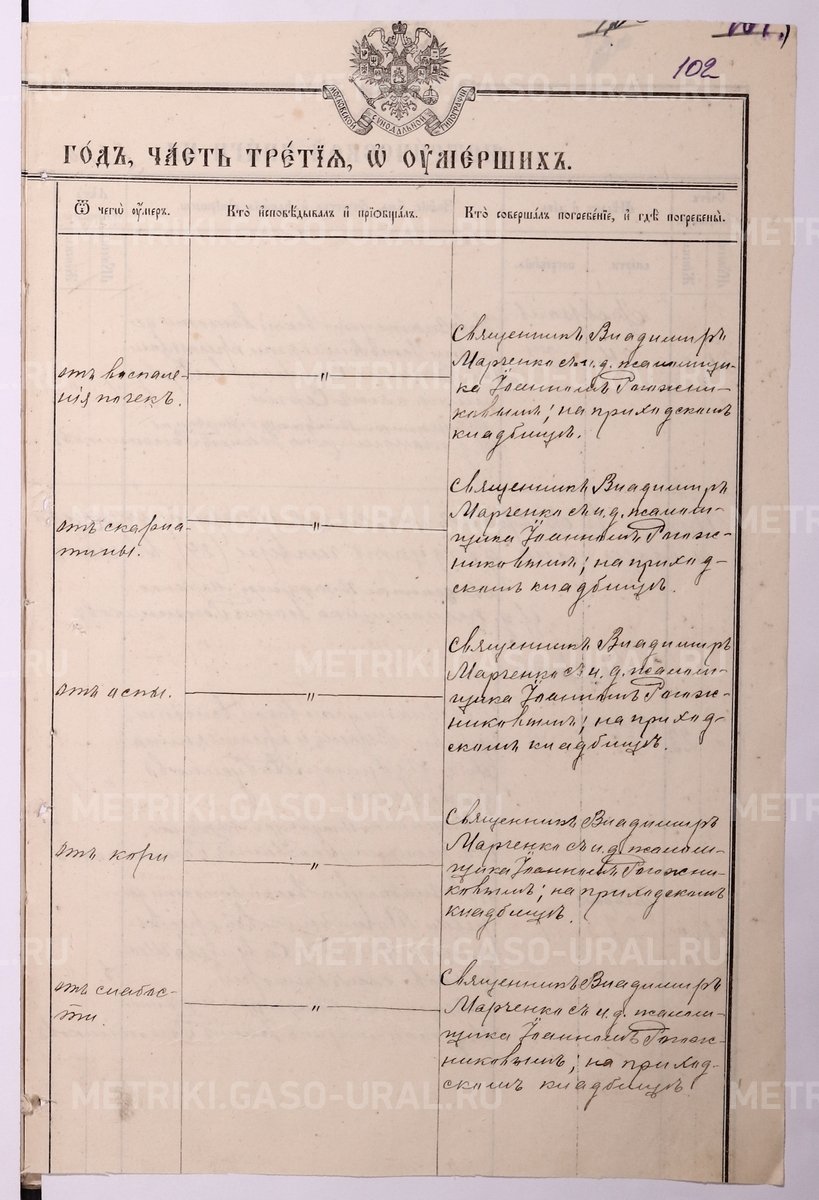 102
МОСКОВСКОЙ СѴНОДАЛЬНОЙ ТИПОГРАФІИ
ГО́ДЪ, ЧА́СТЬ ТРЕ́ТІѦ, Ѡ҆ ОУ҆МЕ́РШИХЪ.
Ѿ чегѡ̀ оу҆́меръ.
Кто̀ и҆сповѣ́дывалъ и҆ прїѡбща́лъ.
Кто̀ соверша́лъ погребе́нїе, и҆ гдѣ̀ погребены̀.
отъ воспале-
нія почекъ.
"
Священникъ Владимиръ
Марченко съ и.д. псаломщи-
ка Іоанномъ Рогожни-
ковымъ; на приходскомъ
кладбищѣ.
отъ скарла-
тины.
"
Священникъ Владимиръ
Марченко съ и.д. псалом-
щика Іоанномъ Рогож-
никовымъ; на приход-
скомъ кладбищѣ.
отъ оспы.
"
Священникъ Владимиръ
Марченко съ и.д. псалом-
щика Іоанномъ Рогож-
никовымъ; на приход-
скомъ кладбищѣ.
отъ кори
"
Священникъ Владимиръ
Марченко съ и.д. псалом-
щика Іоанномъ Рогожни-
ковымъ; на приходскомъ
кладбищѣ.
отъ слабос-
ти.
"
Священникъ Владимиръ
Марченко съ и.д. псалом-
щика Іоанномъ Рогож-
никовымъ; на приход-
скомъ кладбищѣ
METRIKI.GASO-URAL.RU